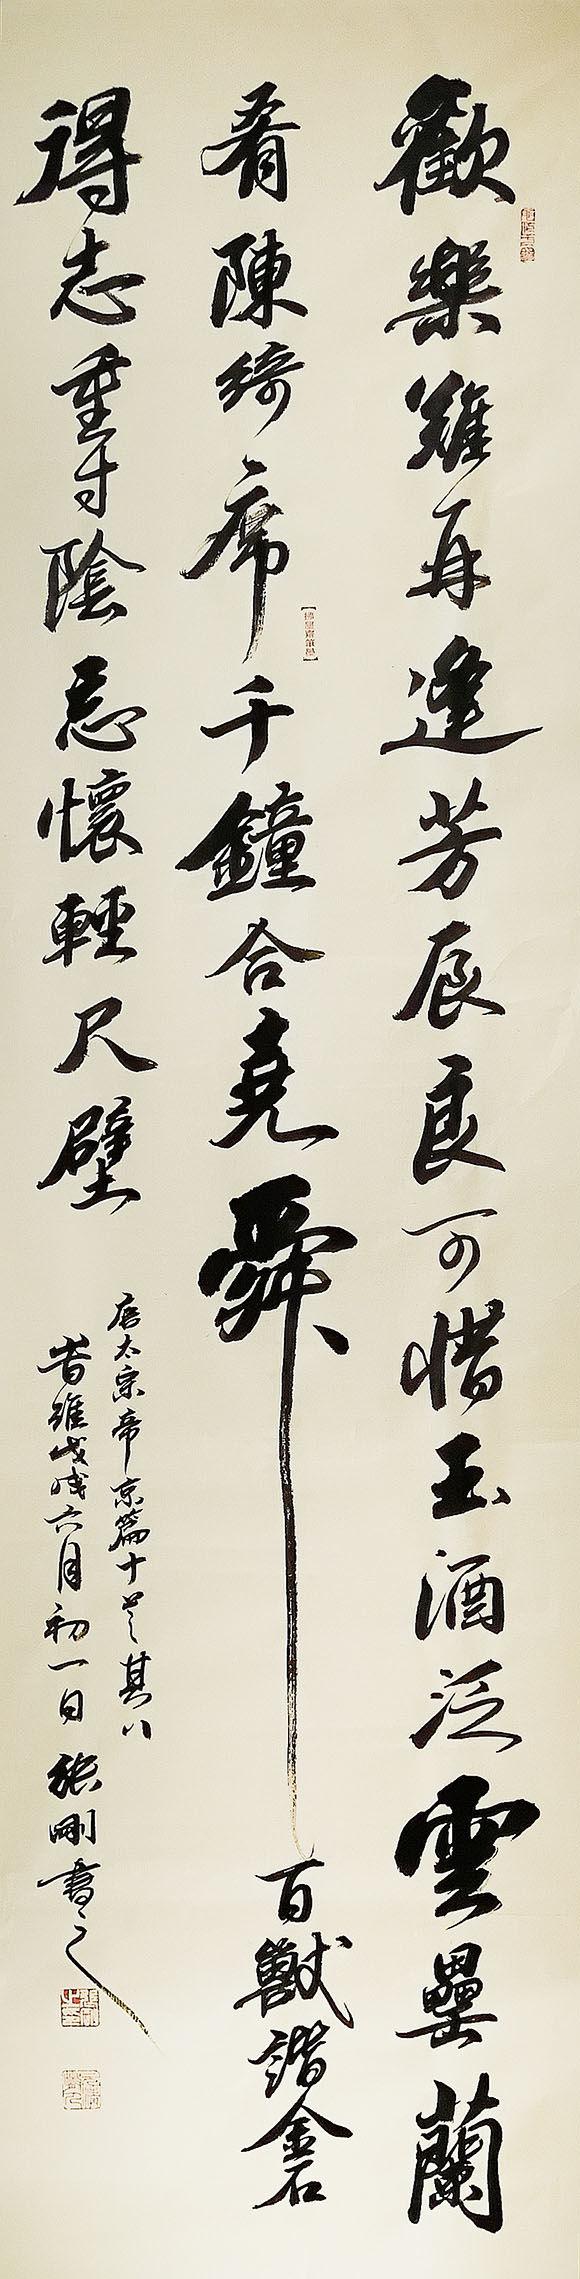 歡樂難再逢芳辰良可惜玉酒泛雲罍蘭
肴陳綺席千鐘合堯舜百獸諧金石
得志重寸陰忘懷輕尺璧
唐太宗帝京篇十之其八
昔維戊戌六月初一日張剛書之